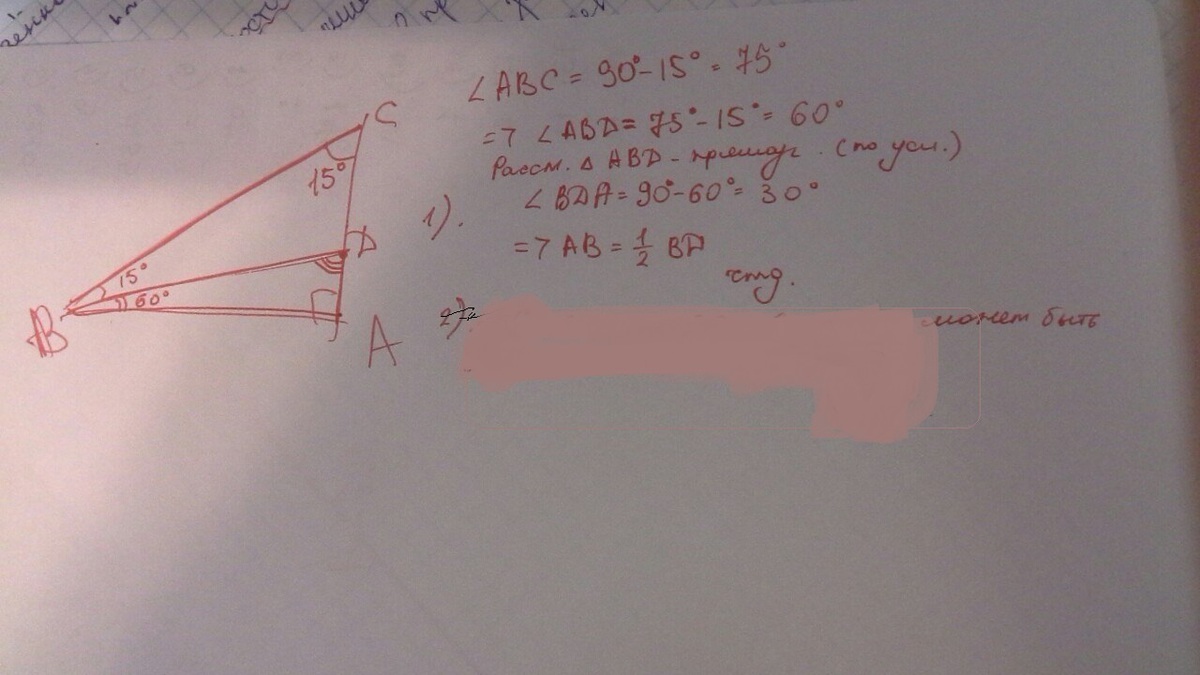 ∠ABC = 90° - 15° = 75°
=7 ∠ABD = 75° - 15° = 60°
Рассм. △ ABD - прямоуг. (по усл.)
1). ∠BDA = 90° - 60° = 30°
=7 AB = 1/2 BD
чтд.
2)
может быть
C
15°
D
15°
60°
B
A